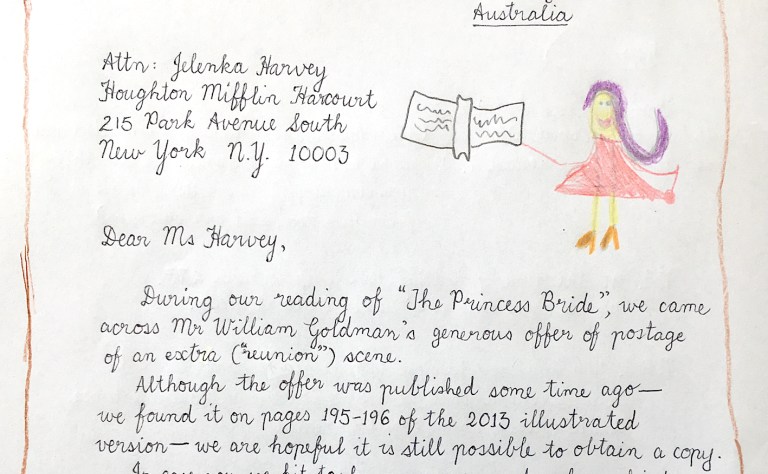 Australia
Attn: Jelenka Harvey
Houghton Mifflin Harcourt
215 Park Avenue South
New York N.Y. 10003
Dear Ms Harvey,
During our reading of "The Princess Bride", we came
across Mr William Goldman's generous offer of postage
of an extra ("reunion") scene.
Although the offer was published some time ago—
we found it on pages 195-196 of the 2013 illustrated
version—we are hopeful it is still possible to obtain a copy.